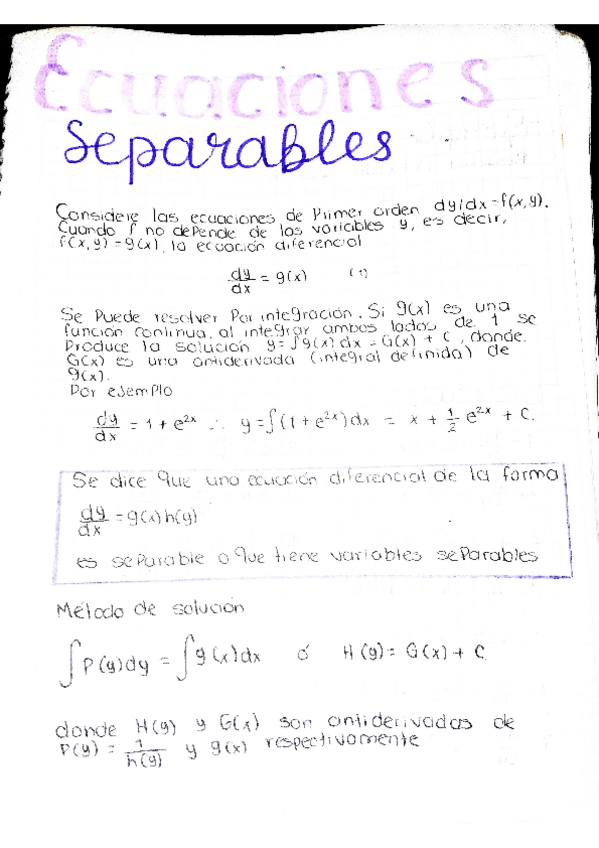 Ecuaciones
Separables
Considere las ecuaciones de Primer orden dy/dx = f(x,y).
Cuando f no depende de las variables y, es decir,
f(x,y) = g(x), la ecuación diferencial
dy/dx = g(x) (1)
Se Puede resolver Por integración. Si g(x) es una
función continua, al integrar ambos lados de 1 se
Produce la solución y = ∫g(x)dx = G(x) + C, donde
G(x) es una antiderivada (integral definida) de
g(x).
Por ejemplo
dy/dx = 1 + e^2x ∴ y = ∫(1 + e^2x)dx = x + 1/2 e^2x + C.
Se dice que una ecuación diferencial de la forma
dy/dx = g(x)h(y)
es separable o que tiene variables separables
Método de solución
∫P(y)dy = ∫g(x)dx ó H(y) = G(x) + C
donde H(y) y G(x) son antiderivadas de
P(y) = 1/h(y) y g(x) respectivamente